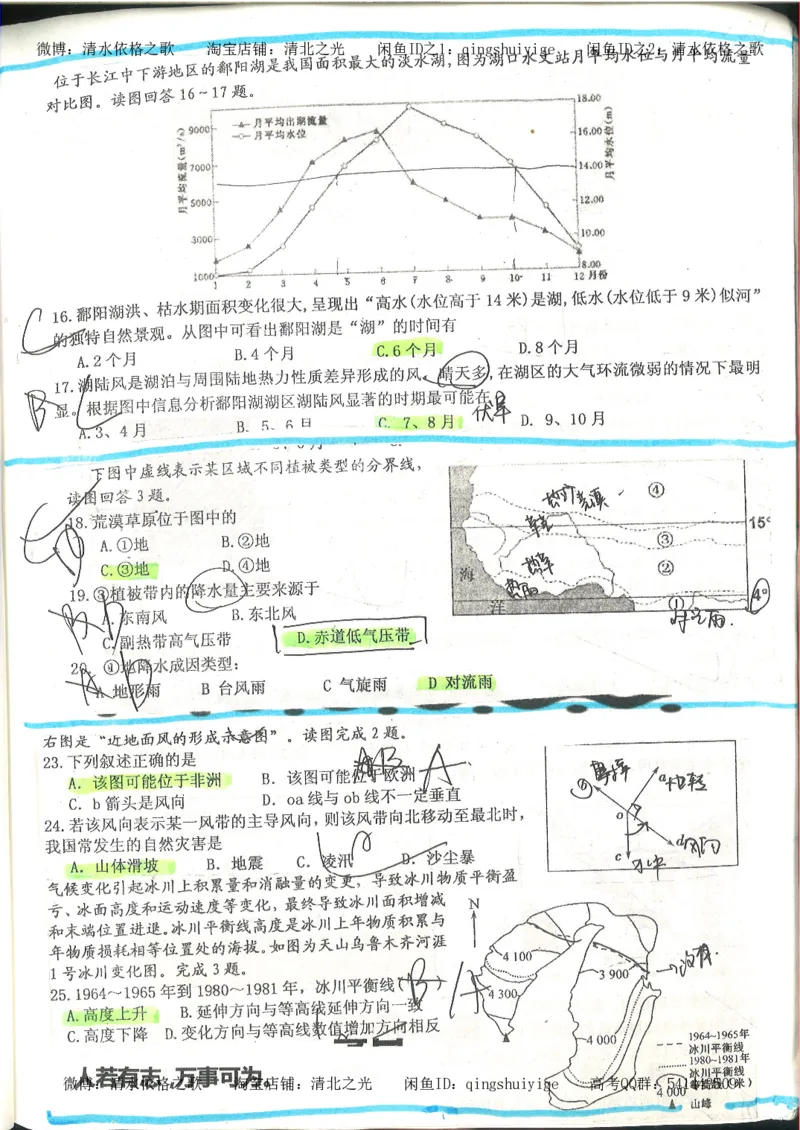 微博：清水依格之歌 淘宝店铺：清北之光 闲鱼ID之1：qingshuiyige 闲鱼ID之2：清水依格之歌
位于长江中下游地区的鄱阳湖是我国面积最大的淡水湖，图为湖口水文站月平均水位与月平均流量
对比图。读图回答16~17题。
月平均流量(m³/s)
9000
7000
5000
3000
1000
月平均出湖流量
月平均水位
18.00
16.00
14.00
12.00
10.00
8.00
月平均水位(m)
1 2 3 4 5 6 7 8 9 10 11 12 月份
C
16.鄱阳湖洪、枯水期面积变化很大，呈现出“高水(水位高于14米)是湖，低水(水位低于9米)似河”
的独特自然景观。从图中可看出鄱阳湖是“湖”的时间有
A.2个月 B.4个月 C.6个月 D.8个月
B
17.湖陆风是湖泊与周围陆地热力性质差异形成的风。晴天多，在湖区的大气环流微弱的情况下最明
显。根据图中信息分析鄱阳湖湖区湖陆风显著的时期最可能在
伏旱
A.3、4月 B. 5、6月 C. 7、8月 D. 9、10月
下图中虚线表示某区域不同植被类型的分界线，
读图回答3题。
18.荒漠草原位于图中的
A.①地 B.②地
C.③地 D.④地
19.③植被带内的降水量主要来源于
A.东南风 B.东北风
C.副热带高气压带 D.赤道低气压带
20. ④地降水成因类型：
A 地形雨 B 台风雨 C 气旋雨 D 对流雨
④
15°
③
②
①
4°
海
洋
右图是“近地面风的形成示意图”。读图完成2题。
23.下列叙述正确的是
A. 该图可能位于非洲 B. 该图可能位于欧洲
A
C. b箭头是风向 D. oa线与ob线不一定垂直
24.若该风向表示某一风带的主导风向，则该风带向北移动至最北时，
我国常发生的自然灾害是
A. 山体滑坡 B. 地震 C. 凌汛 D. 沙尘暴
o
c
气候变化引起冰川上积累量和消融量的变更，导致冰川物质平衡盈
亏、冰面高度和运动速度等变化，最终导致冰川面积增减
和末端位置进退。冰川平衡线高度是冰川上年物质积累与
年物质损耗相等位置处的海拔。如图为天山乌鲁木齐河涯
1号冰川变化图。完成3题。
25.1964～1965年到1980～1981年，冰川平衡线( )
B
A.高度上升 B.延伸方向与等高线延伸方向一致
C.高度下降 D.变化方向与等高线数值增加方向相反
N
4 100
3 900
4 300
4 000
1964~1965年
冰川平衡线
1980~1981年
冰川平衡线
4 000
山峰
人若有志，万事可为。
微博：清水依格之歌 淘宝店铺：清北之光 闲鱼ID：qingshuiyige